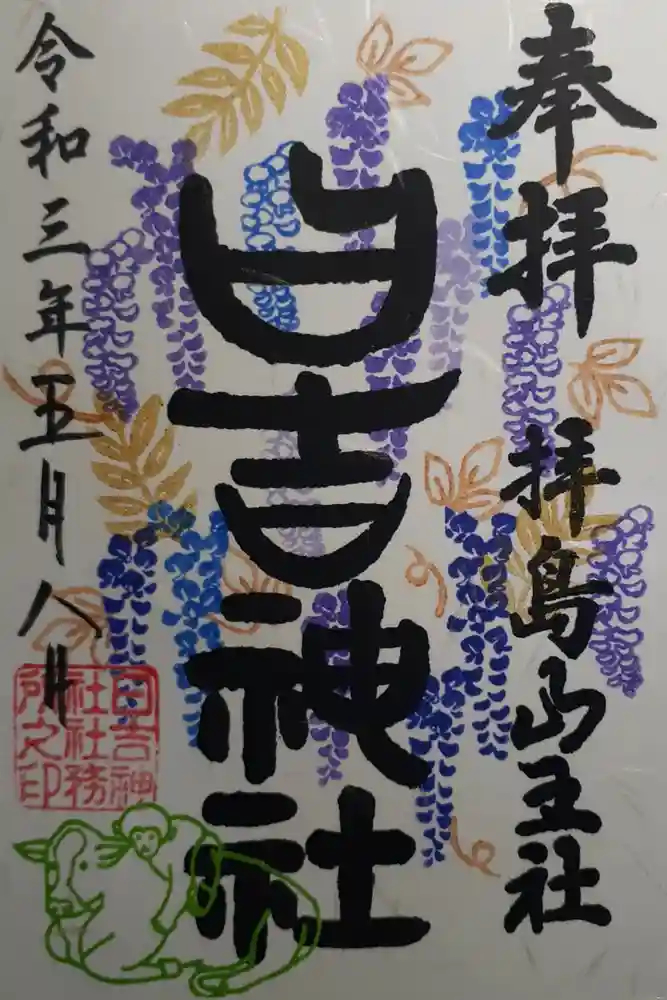 奉拝 拝島山王社
日吉神社
令和三年五月八日
日吉神
社社務
所之印